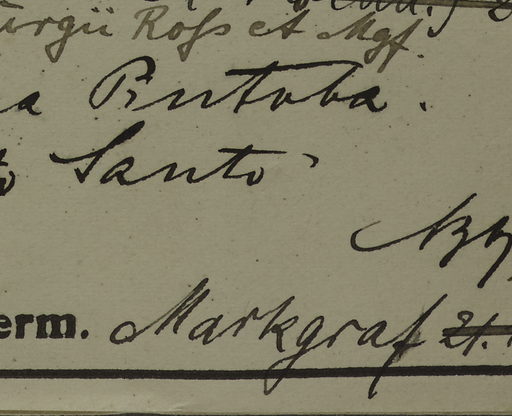 ürgii Rofs et Mgf.
a Pintoba.
Santo
erm. Markgraf 21.